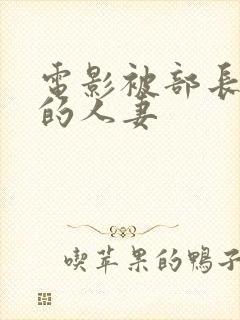 電影被部長
的人妻
喫苹果的鴨子